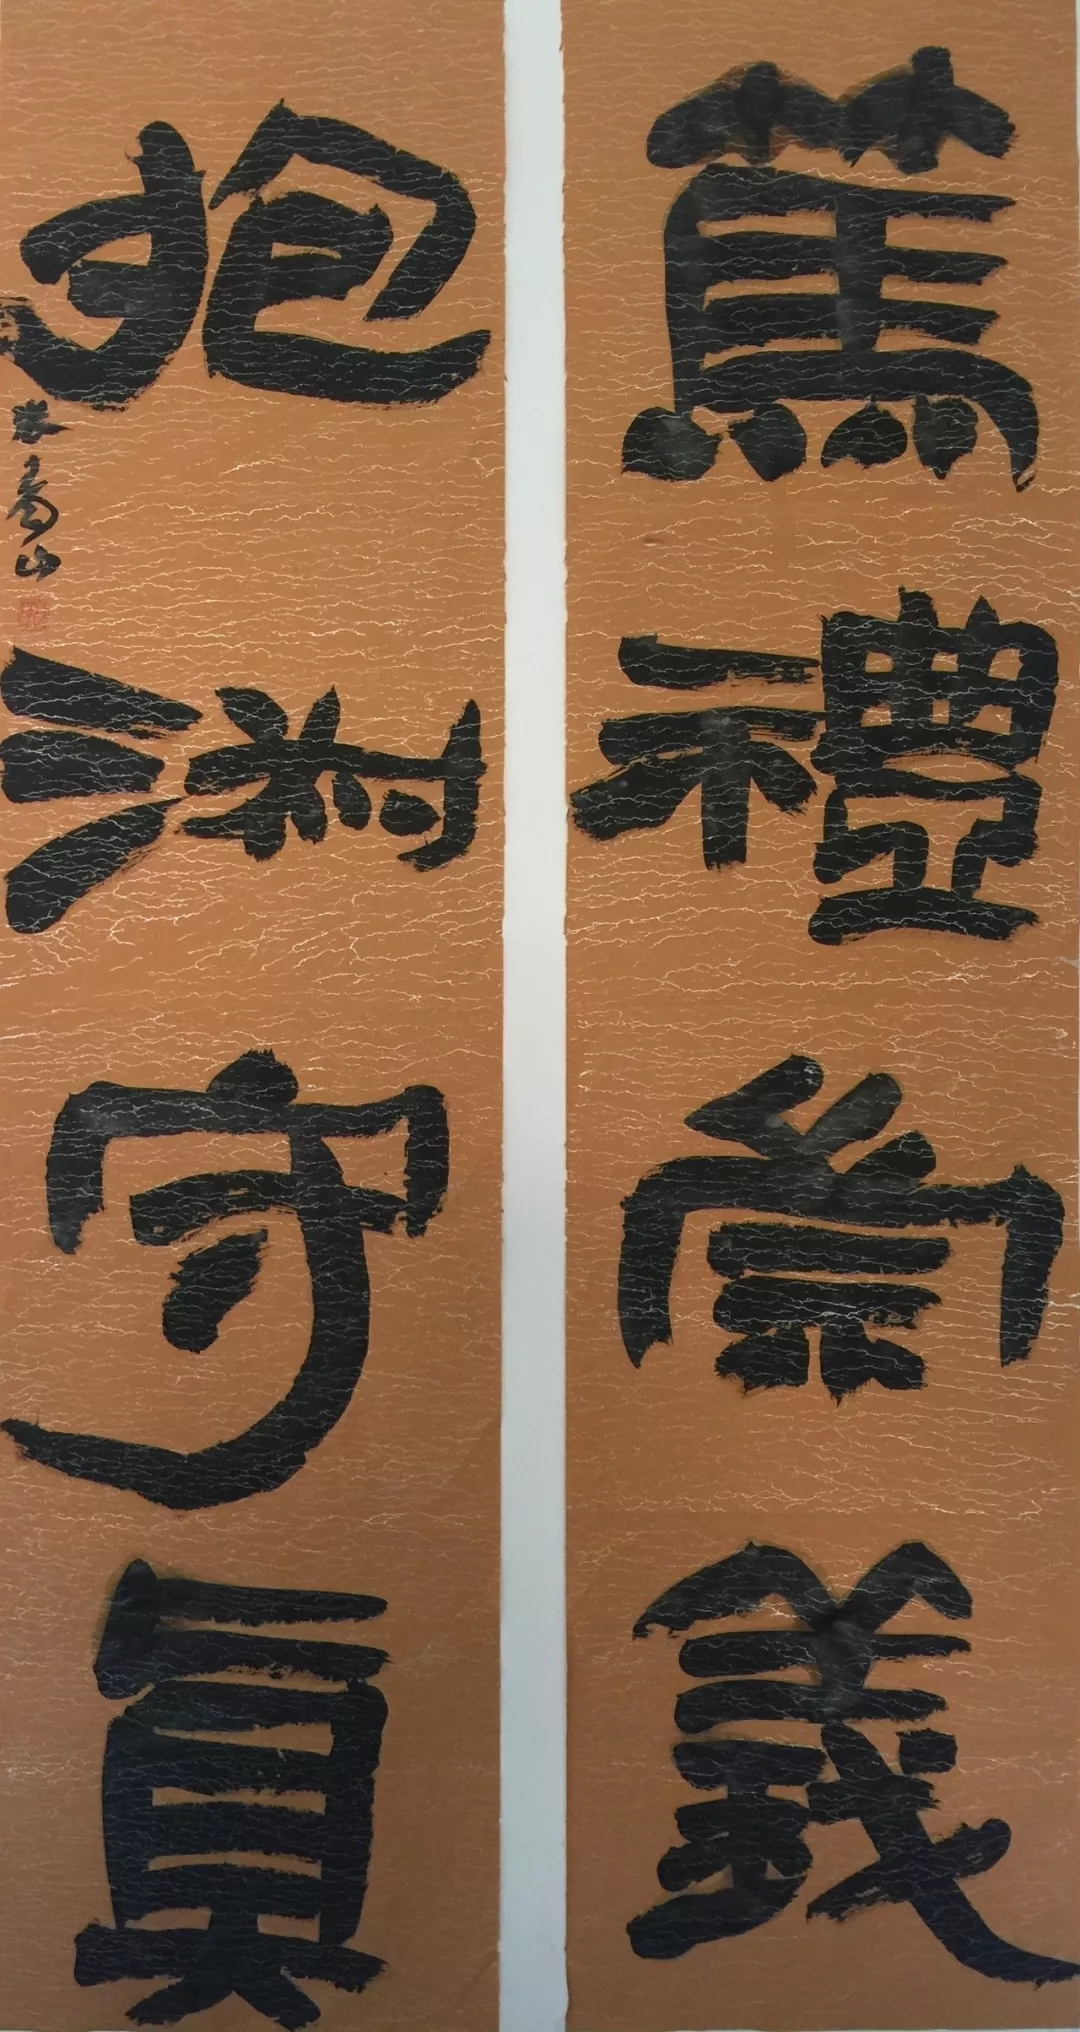 篤禮崇義
抱淑守眞
高山